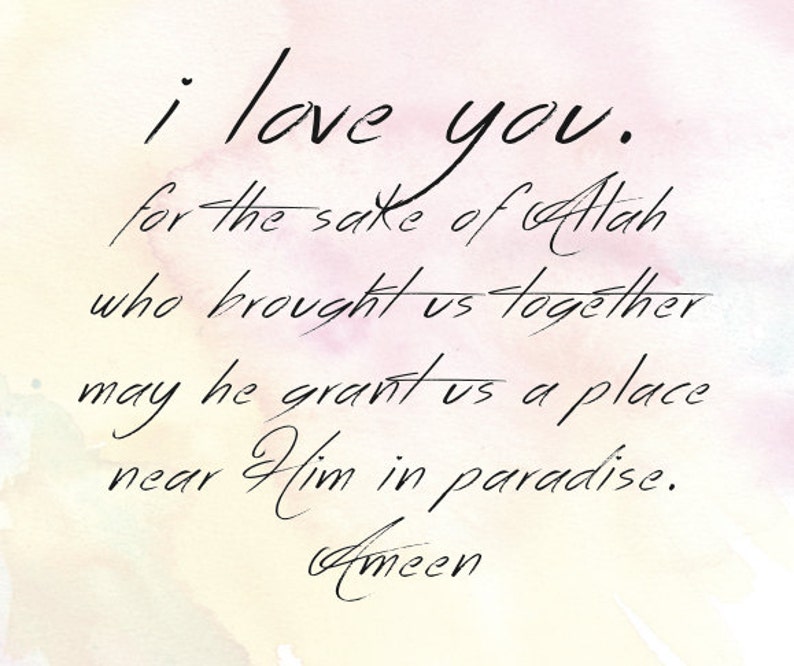 i love you.
for the sake of Allah
who brought us together
may he grant us a place
near Him in paradise.
Ameen